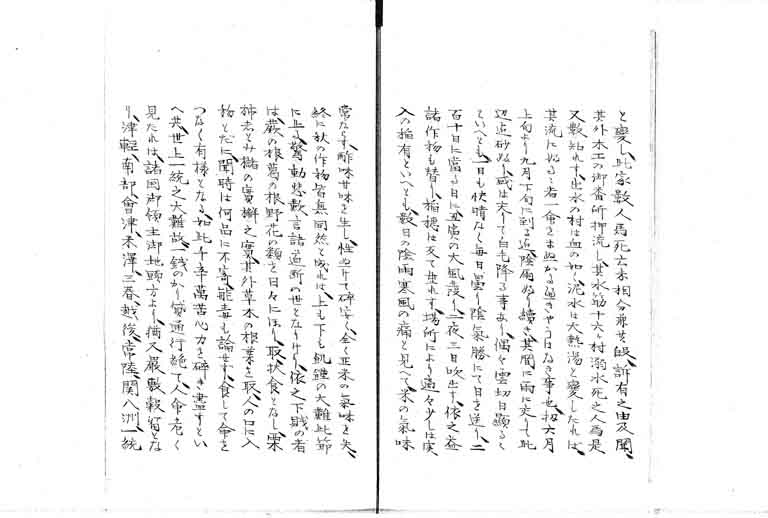 と変し、此家数人馬死亡未相分兼其段、訴有之由及聞、
其外木工の御番所押流し、其水筋十六ヶ村溺水死之人馬是
又数知れす、出水の村は血の如し、泥水は大熱湯と変したれは、
其流にぬるゝ者一命をまぬかる過きやうはなき事也、扨六月
上旬より九月下旬に到る迄、陰雨ぬり続き、其間に雨に交りて此
辺迄砂ぬり、或は夫々て白毛降る事あり、偶々雲切日顕るく
といへとも一日も快晴なく毎日曇り陰気勝にて日を送り、二
百十日に当る日に丑寅の大風発り、二夜三日吹出す、依之益
諸作物も替り、稲穂は交て生れす、場所により適々少しは実
入の稲有といへとも、数日の陰雨寒風の痛と見へて、米の気味
常ならす、酢味甘味を生し、性ぬけて砕安く、全く正米の気味を失、
終に秋の作物皆無同然と成れは、上も下も飢饉の大難此節
に止る、驚動悲歎言語道断の世となりけり、依之下賎の者
は蕨の根葛の根野花の類を日々にほり、取扶食となし、栗
柿者とみ楢の実、槲之実、其外草木の根葉を取、人の口に入
物とだに聞時は何品に不寄、能毒も論せす食して命を
つなく有様となる、如此千辛萬苦心力を砕き盡すとい
へ共、世上一統之大難故、一銭のかり貸通行絶て、人命危く
見たれは、諸国御領主御地頭方より、猶又厳敷穀留とな
り、津軽、南部、會津、米澤、三春、越後、常陸、関八洲一統